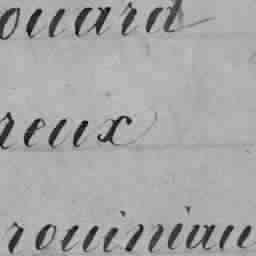 ouard
reux
rouiniau